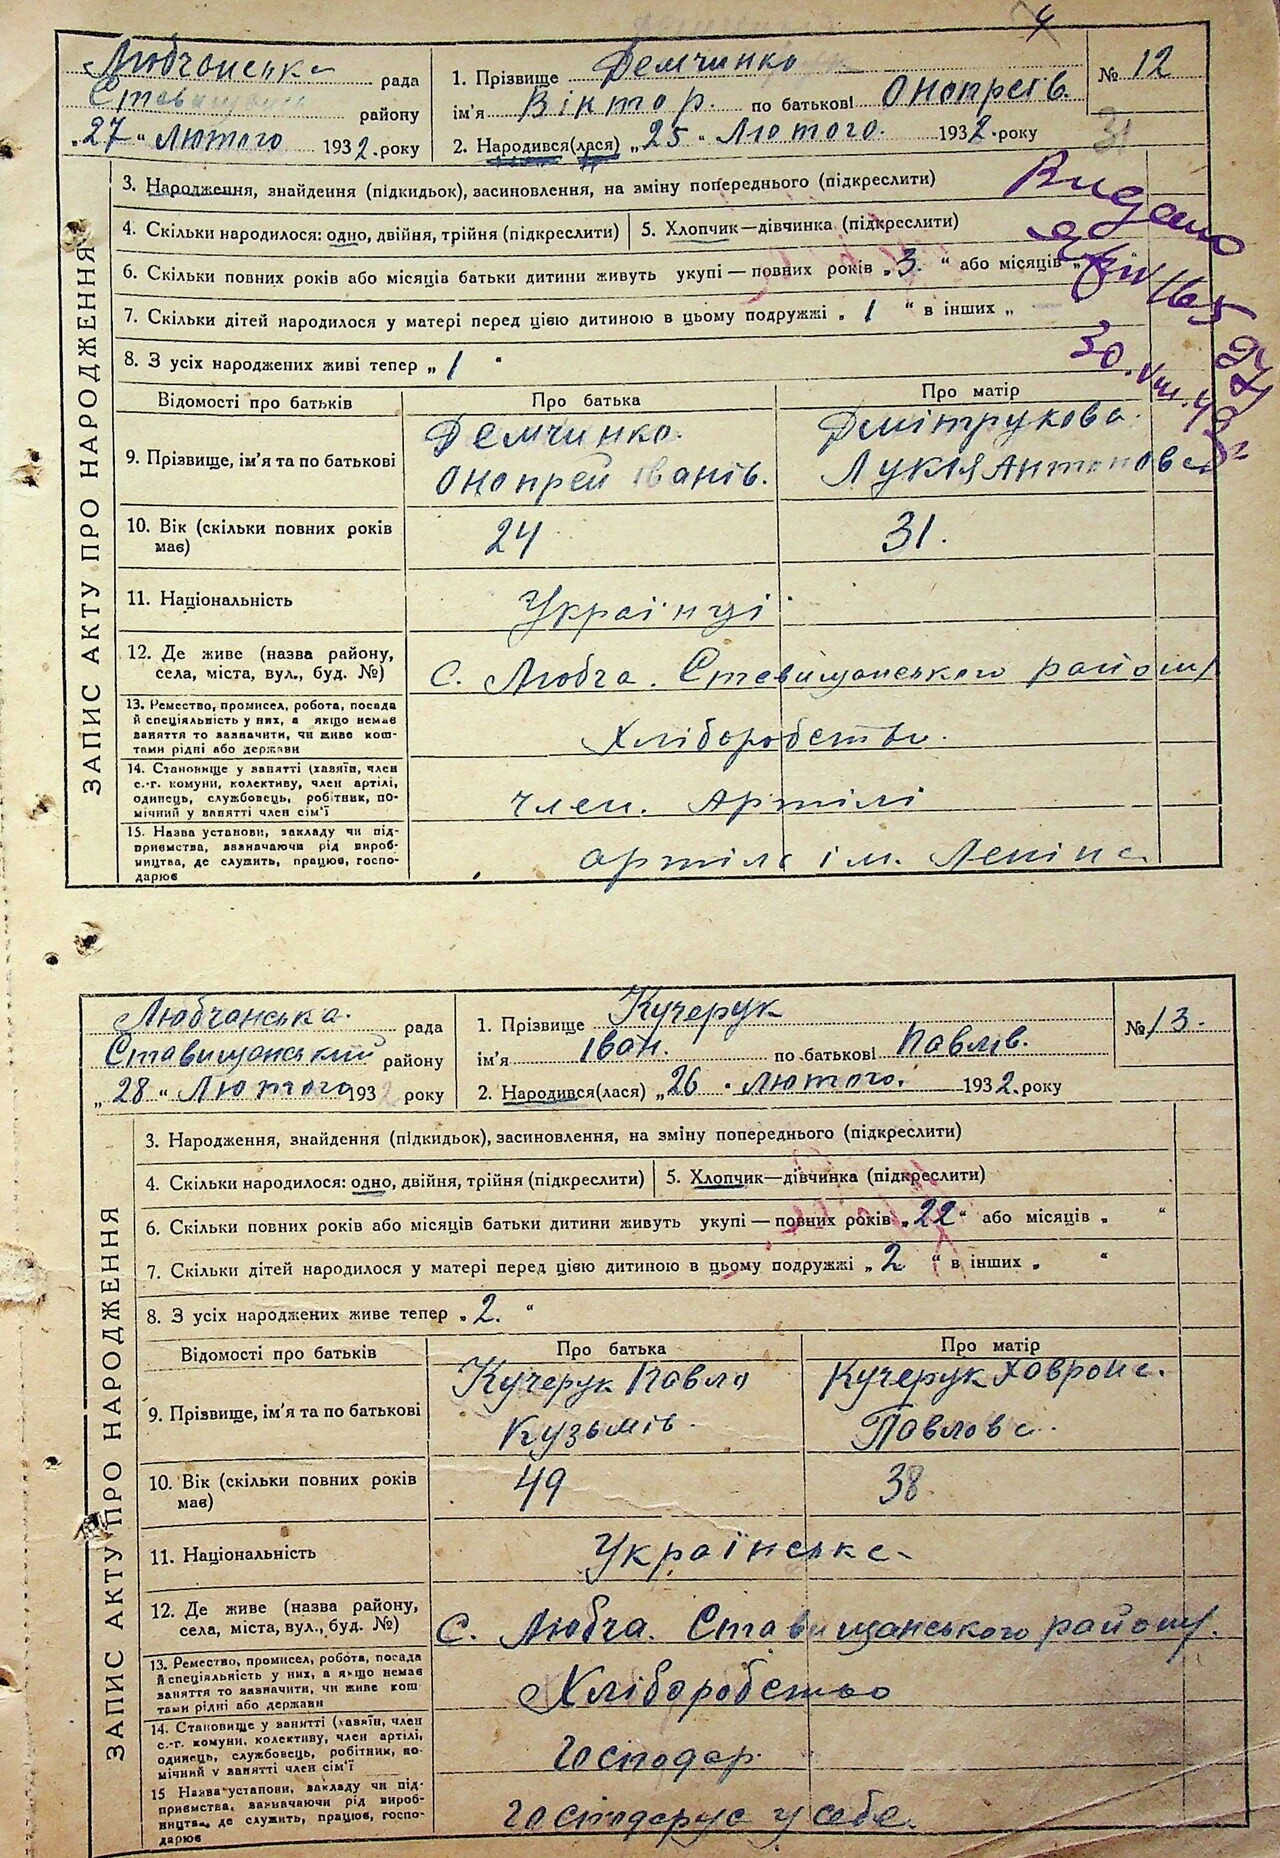 4
Любчанська рада
Ставищанськ району
„27“ Лютого 1932.року
1. Прізвище Демчинко
ім'я Віктор. по батькові Онопреів.
2. Народився(лася) „25“ Лютого. 1932.року
№ 12
31
ЗАПИС АКТУ ПРО НАРОДЖЕННЯ
3. Народження, знайдення (підкидьок), засиновлення, на зміну попереднього (підкреслити)
4. Скільки народилося: одно, двійня, трійня (підкреслити)
5. Хлопчик—дівчинка (підкреслити)
6. Скільки повних років або місяців батьки дитини живуть укупі — повних років „3.“ або місяців „
7. Скільки дітей народилося у матері перед цією дитиною в цьому подружжі „1“ в інших „ —
8. З усіх народжених живі тепер „1“
Видано
30.VIII.49
Відомості про батьків
Про батька
Про матір
9. Прізвище, ім'я та по батькові
Демчинко.
Онопрей Іванів.
Дмітрукова.
Лукія Антоновна
10. Вік (скільки повних років
має)
24
31.
11. Національність
Украінці
12. Де живе (назва району,
села, міста, вул., буд. №)
С. Любча. Ставищанського району
13. Ремество, промисел, робота, посада
й спеціяльність у них, а якщо немає
заняття то зазначити, чи живе кош-
тами рідні або держави
Хліборобство.
14. Становище у занятті (хазяїн, член
с.-г. комуни, колективу, член артілі,
одинець, службовець, робітник, по-
мічний у занятті член сім'ї
член. Артілі
15. Назва установи, закладу чи під-
приємства, зазначаючи рід вироб-
ництва, де служить, працює, госпо-
дарює
артіль ім. Леніна.
Любчанська. рада
Ставищанський району
„28“ Лютого 1932 року
1. Прізвище Кучерук
ім'я Іван. по батькові Павлів.
2. Народився(лася) „26. Лютого. 1932.року
№ 13.
ЗАПИС АКТУ ПРО НАРОДЖЕННЯ
3. Народження, знайдення (підкидьок), засиновлення, на зміну попереднього (підкреслити)
4. Скільки народилося: одно, двійня, трійня (підкреслити)
5. Хлопчик—дівчинка (підкреслити)
6. Скільки повних років або місяців батьки дитини живуть укупі — повних років „22“ або місяців „ “
7. Скільки дітей народилося у матері перед цією дитиною в цьому подружжі „2“ в інших „ “
8. З усіх народжених живе тепер „2.“
Відомості про батьків
Про батька
Про матір
9. Прізвище, ім'я та по батькові
Кучерук Павло
Кузьмів.
Кучерук Хаврона.
Павлова.
10. Вік (скільки повних років
має)
49
38.
11. Національність
Українська
12. Де живе (назва району,
села, міста, вул., буд. №)
С. Любча. Ставищанського району.
13. Ремество, промисел, робота, посада
й спеціяльність у них, а якщо немає
заняття то зазначити, чи живе кош-
тами рідні або держави
Хліборобство
14. Становище у занятті (хазяїн, член
с.-г. комуни, колективу, член артілі,
одинець, службовець, робітник, по-
мічний у занятті член сім'ї
господар.
15 Назва установи, закладу чи під-
приємства, зазначаючи рід вироб-
ництва, де служить, працює, госпо-
дарює
господарує у себе.